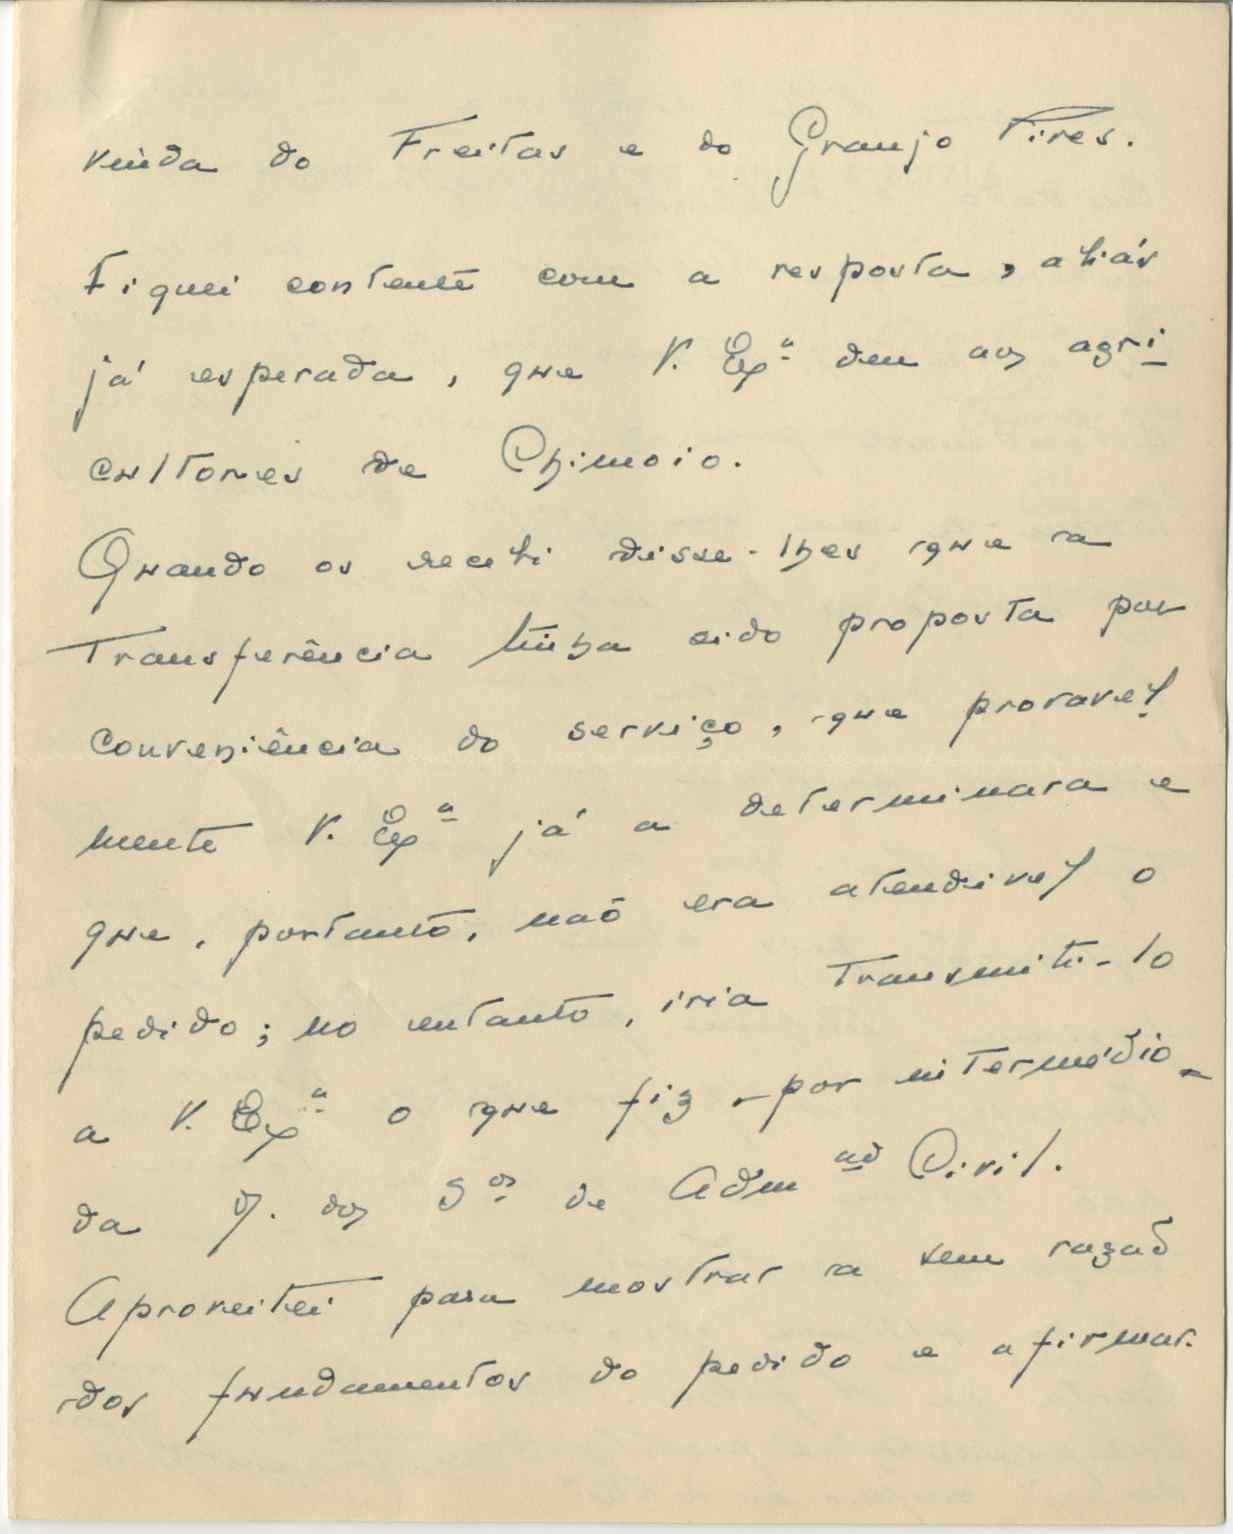 vinda do Freitas e do Granjo Pires.
Fiquei contente com a resposta, aliás
já esperada, que V. Exª deu aos agri-
cultores de Chimoio.
Quando os recebi disse-lhes que a
transferência tinha sido proposta por
conveniência do serviço, que provavel-
mente V. Exª já a determinara e
que, portanto, não era atendivel o
pedido; no entanto, iria transmiti-lo
a V. Exª o que fiz - por intermédio -
da D. dos Sos de Admão Civil.
Aproveitei para mostrar a sem razão
dos fundamentos do pedido e afirmar-